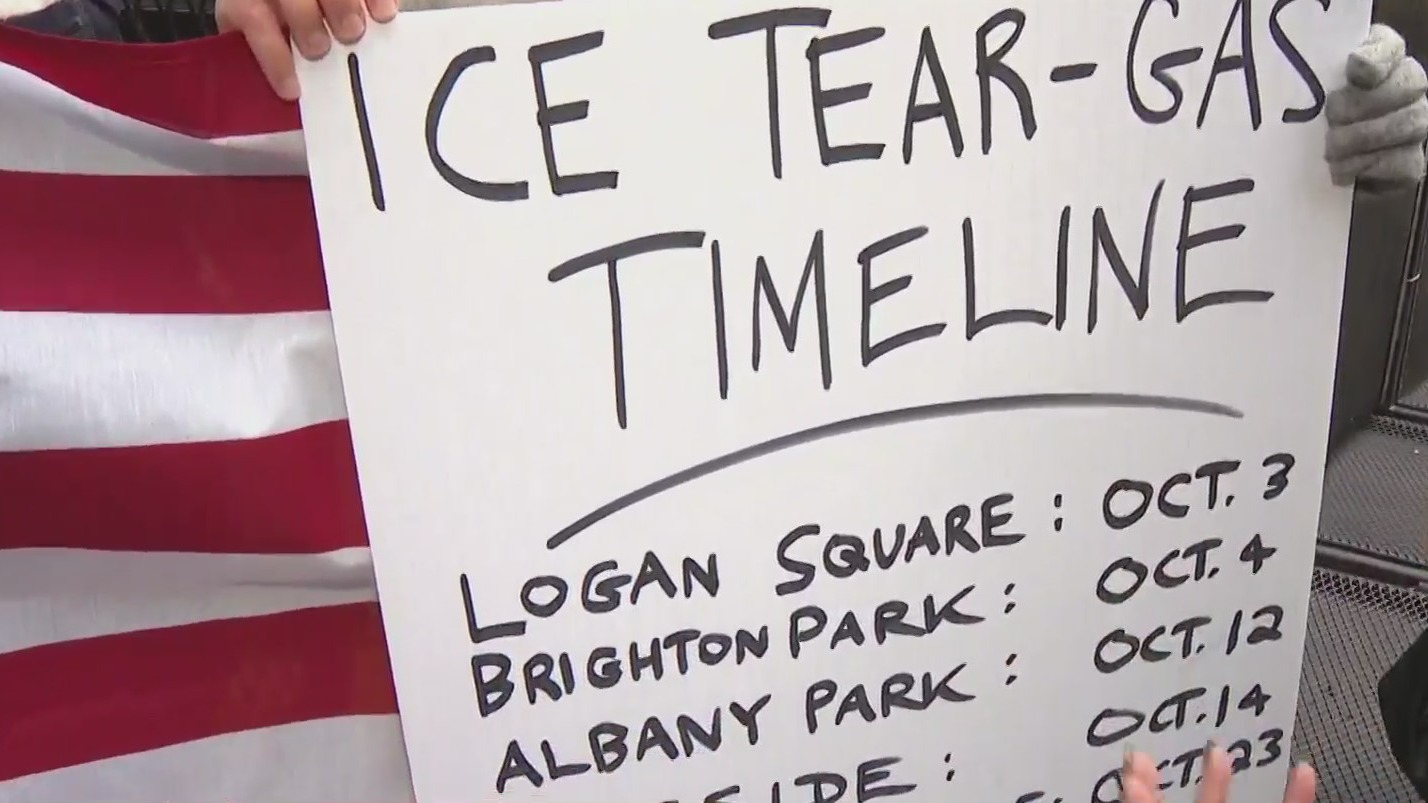 ICE TEAR-GAS
TIMELINE
LOGAN SQUARE: OCT. 3
BRIGHTON PARK: OCT. 4
ALBANY PARK: OCT. 12
OCT. 14
OCT. 23